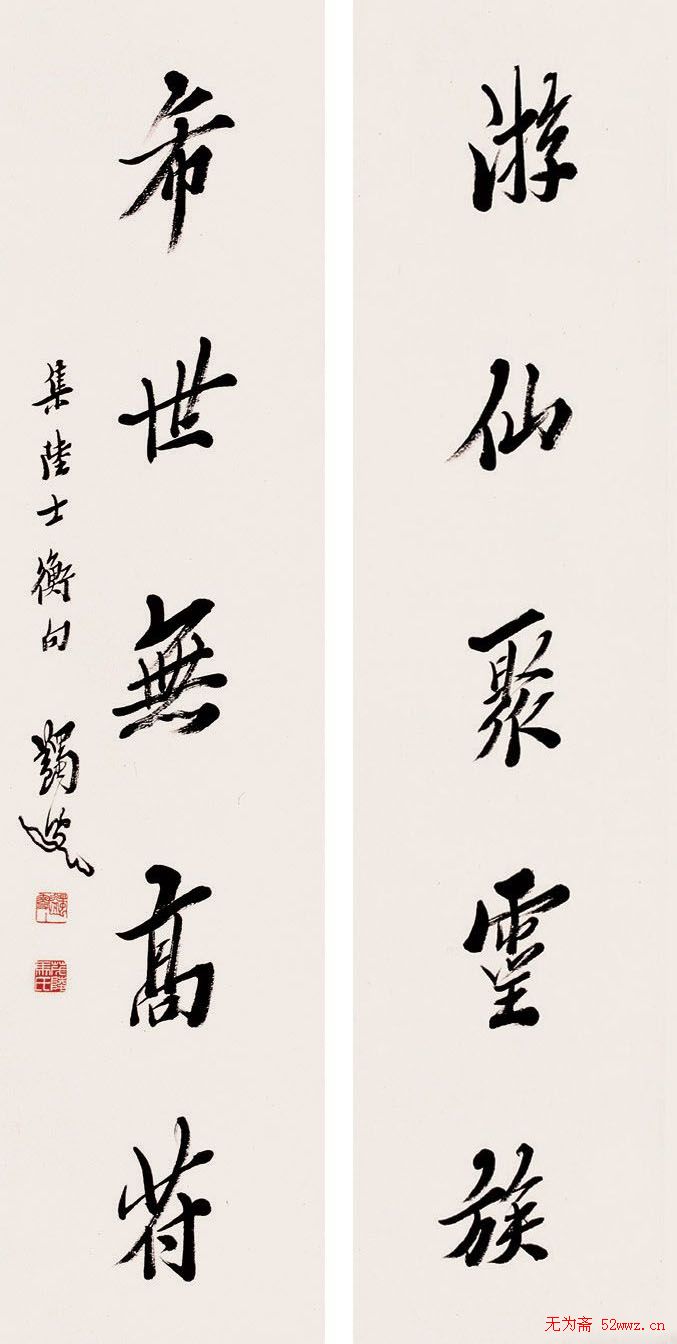 游仙聚靈族
希世無高符
集陸士衡句 蠲叟
无为斋 52wwz.cn